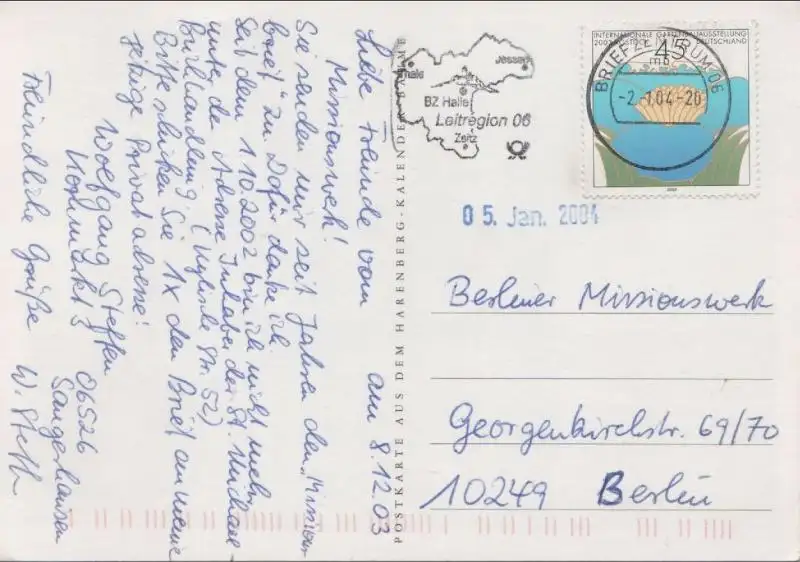 Liebe Freunde vom am 8.12.03
Missionswerk!
Sie senden mir seit Jahren den „Mission
brief" zu. Dafür danke ich.
Seit dem 1.10.2002 bin ich nicht mehr
unter der Adresse Inhaber der St. Michael-
Buchhandlung (Kylische Str. 52)
Bitte schicken Sie 1x den Brief an meine
jetzige Privatadresse!
Wolfgang Steffen
Kornmarkt 3 06526
Sangerhausen
Freundliche Grüße W. Steff
POSTKARTE AUS DEM HARENBERG-KALENDER
Thale
Jessen
BZ Halle
Leitregion 06
Zeitz
INTERNATIONALE GARTENBAUAUSSTELLUNG
2003 ROSTOCK DEUTSCHLAND
45
BRIEFZENTRUM 06
-2.-1.04-20
05. Jan. 2004
Berliner Missionswerk
Georgenkirchstr. 69/70
10249 Berlin